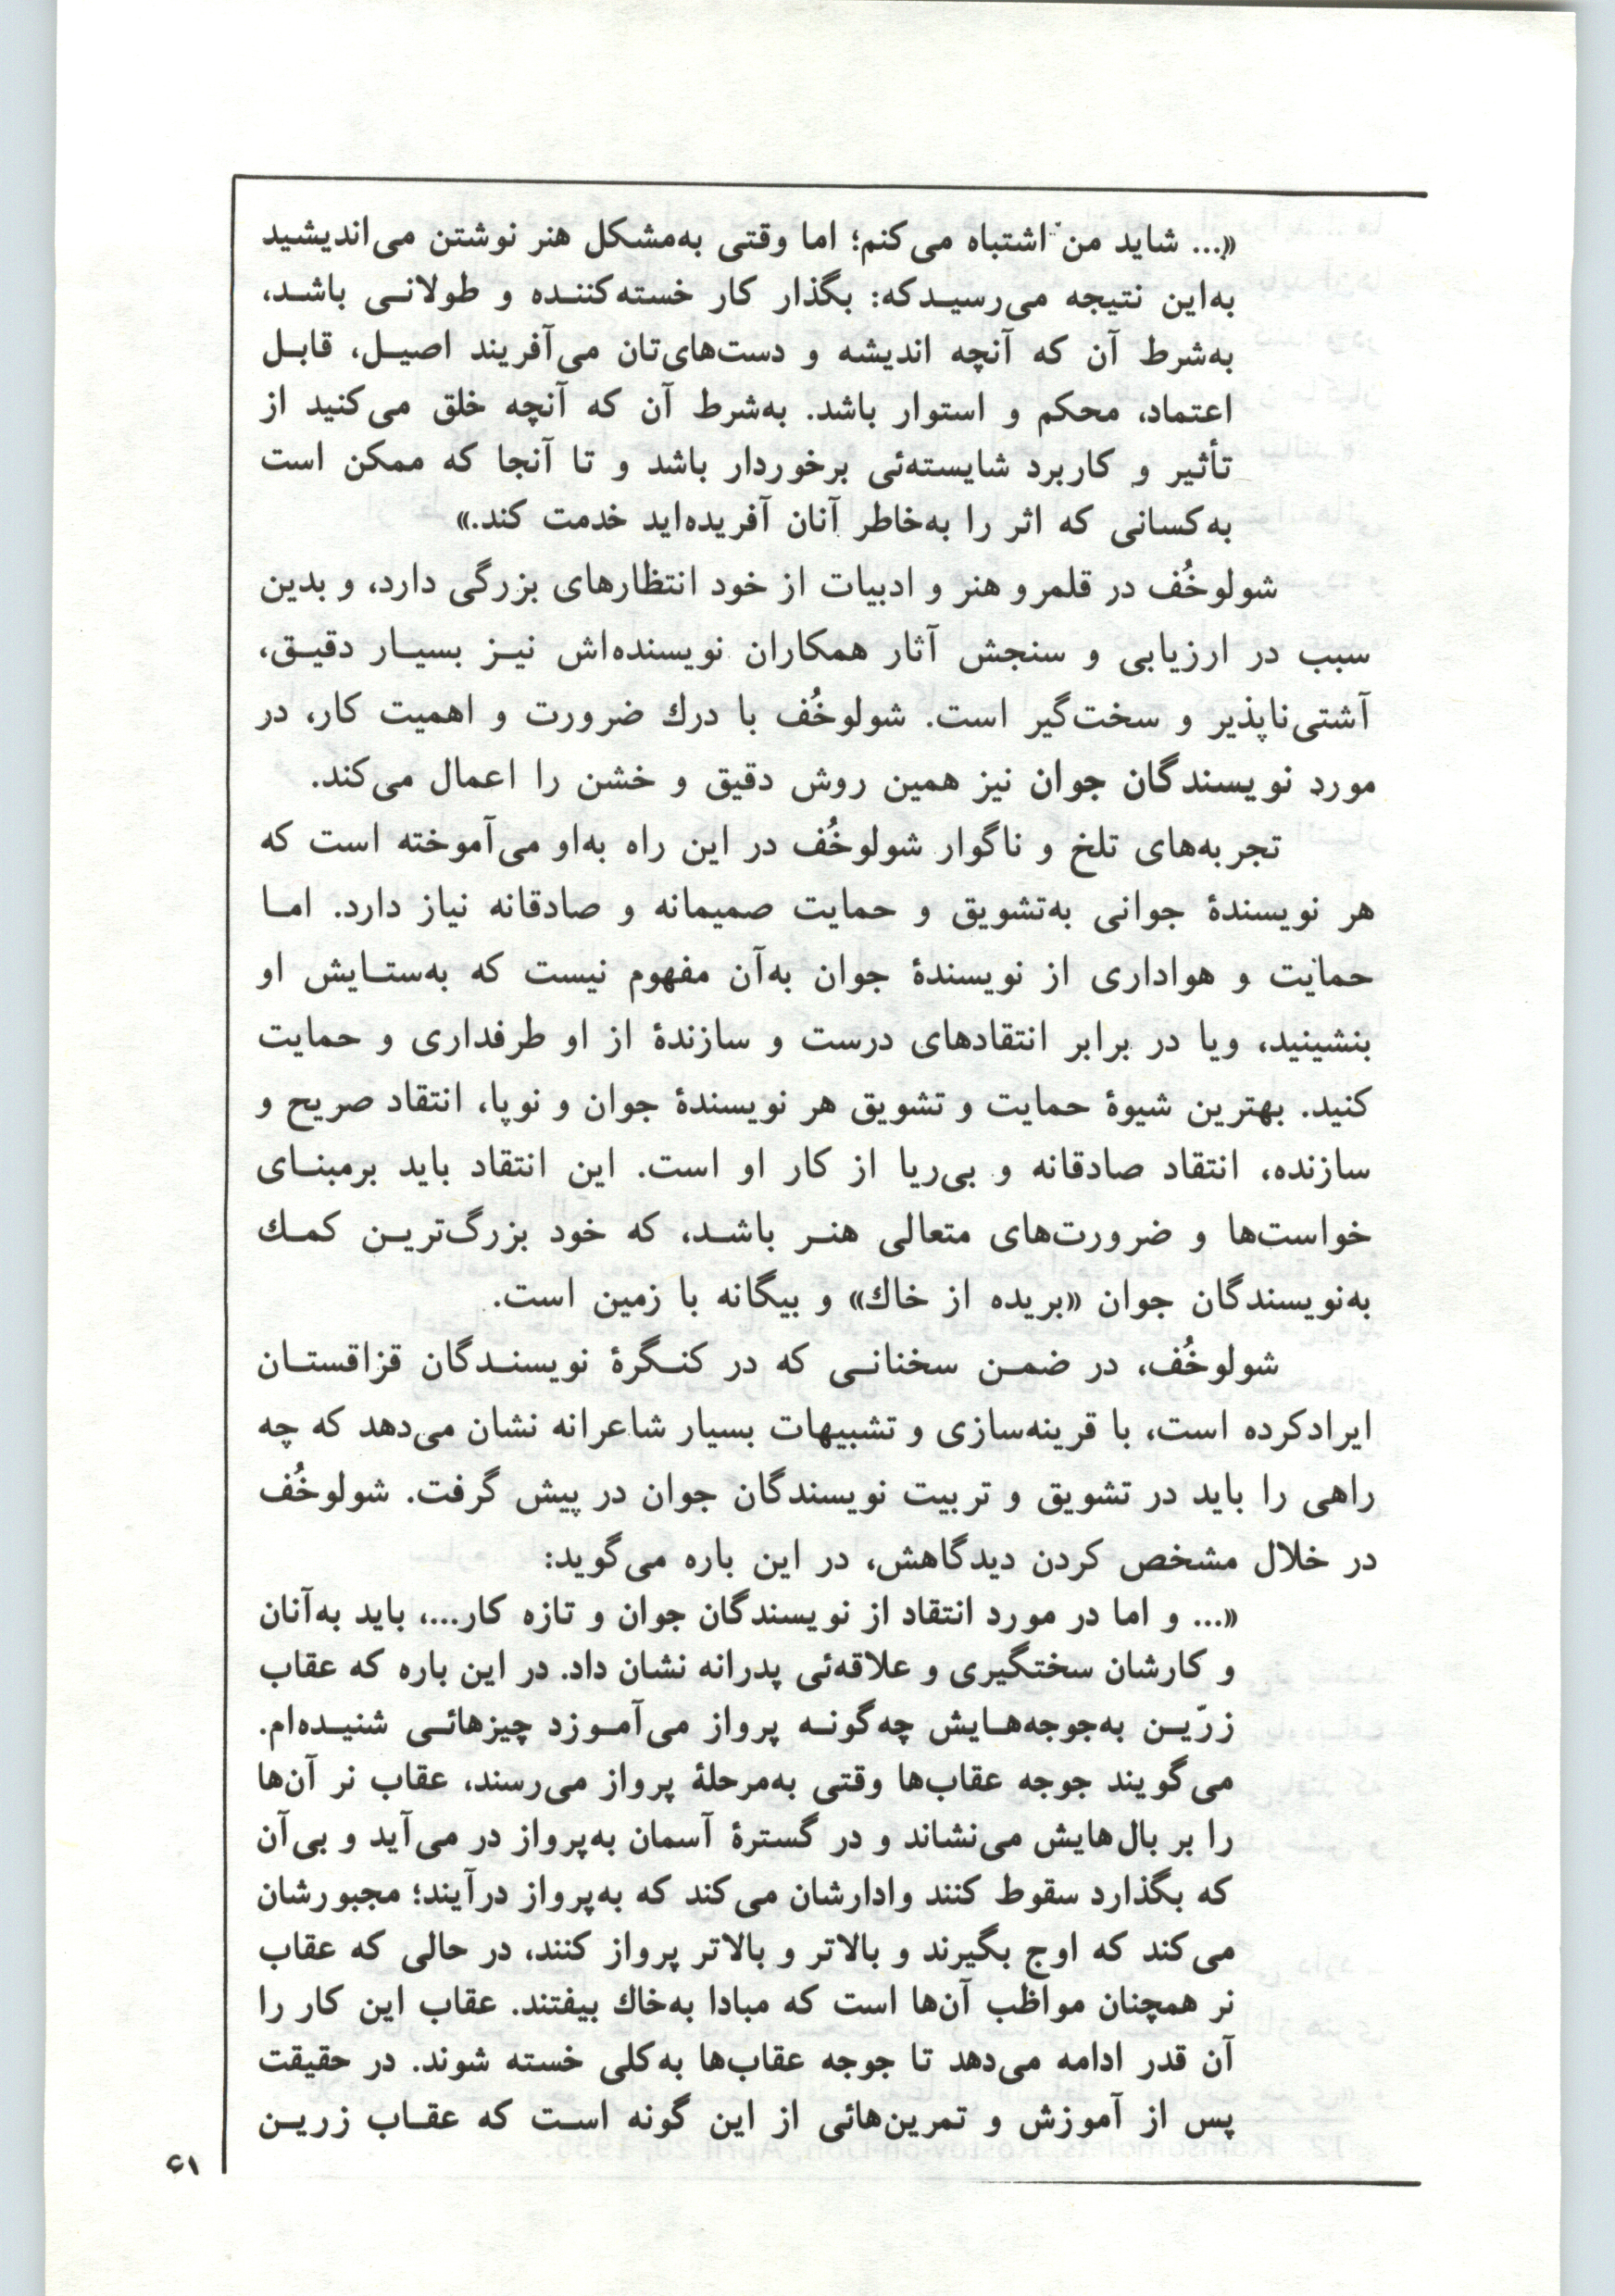 «... شاید من اشتباه می‌کنم؛ اما وقتی به‌مشکل هنر نوشتن می‌اندیشید
به‌این نتیجه می‌رسیـدکه: بگذار کار خسته‌کننـده و طولانـی باشـد،
به‌شرط آن که آنچه اندیشه و دست‌های‌تان می‌آفریند اصیـل، قابـل
اعتماد، محکم و استوار باشد. به‌شرط آن که آنچه خلق می‌کنید از
تأثیر و کاربرد شایسته‌ئی برخوردار باشد و تا آنجا که ممکن است
به‌کسانی که اثر را به‌خاطر آنان آفریده‌اید خدمت کند.»
شولوخُف در قلمرو هنر و ادبیات از خود انتظارهای بزرگی دارد، و بدین
سبب در ارزیابی و سنجش آثار همکاران نویسنده‌اش نیـز بسیـار دقیـق،
آشتی‌ناپذیر و سخت‌گیر است. شولوخُف با درك ضرورت و اهمیت کار، در
مورد نویسندگان جوان نیز همین روش دقیق و خشن را اعمال می‌کند.
تجربه‌های تلخ و ناگوار شولوخُف در این راه به‌او می‌آموخته است که
هر نویسندهٔ جوانی به‌تشویق و حمایت صمیمانه و صادقانه نیاز دارد. امـا
حمایت و هواداری از نویسندهٔ جوان به‌آن مفهوم نیست که به‌ستـایش او
بنشینید، ویا در برابر انتقادهای درست و سازندهٔ از او طرفداری و حمایت
کنید. بهترین شیوهٔ حمایت و تشویق هر نویسندهٔ جوان و نوپا، انتقاد صریح و
سازنده، انتقاد صادقانه و بی‌ریا از کار او است. این انتقاد باید برمبنـای
خواست‌ها و ضرورت‌های متعالی هنـر باشـد، که خود بزرگ‌تریـن کمـك
به‌نویسندگان جوان «بریده از خاك» و بیگانه با زمین است.
شولوخُف، در ضمـن سخنانـی که در کنـگرهٔ نویسنـدگان قزاقستـان
ایرادکرده است، با قرینه‌سازی و تشبیهات بسیار شاعرانه نشان می‌دهد که چه
راهی را باید در تشویق و تربیت نویسندگان جوان در پیش گرفت. شولوخُف
در خلال مشخص کردن دیدگاهش، در این باره می‌گوید:
«... و اما در مورد انتقاد از نویسندگان جوان و تازه کار...، باید به‌آنان
و کارشان سختگیری و علاقه‌ئی پدرانه نشان داد. در این باره که عقاب
زرّیـن به‌جوجه‌هـایش چه‌گونـه پرواز می‌آمـوزد چیزهائـی شنیـده‌ام.
می‌گویند جوجه عقاب‌ها وقتی به‌مرحلهٔ پرواز می‌رسند، عقاب نر آن‌ها
را بر بال‌هایش می‌نشاند و در گسترهٔ آسمان به‌پرواز در می‌آید و بی‌آن
که بگذارد سقوط کنند وادارشان می‌کند که به‌پرواز درآیند؛ مجبورشان
می‌کند که اوج بگیرند و بالاتر و بالاتر پرواز کنند، در حالی که عقاب
نر همچنان مواظب آن‌ها است که مبادا به‌خاك بیفتند. عقاب این کار را
آن قدر ادامه می‌دهد تا جوجه عقاب‌ها به‌کلی خسته شوند. در حقیقت
پس از آموزش و تمرین‌هائی از این گونه اسـت که عقـاب زریـن
۶۱